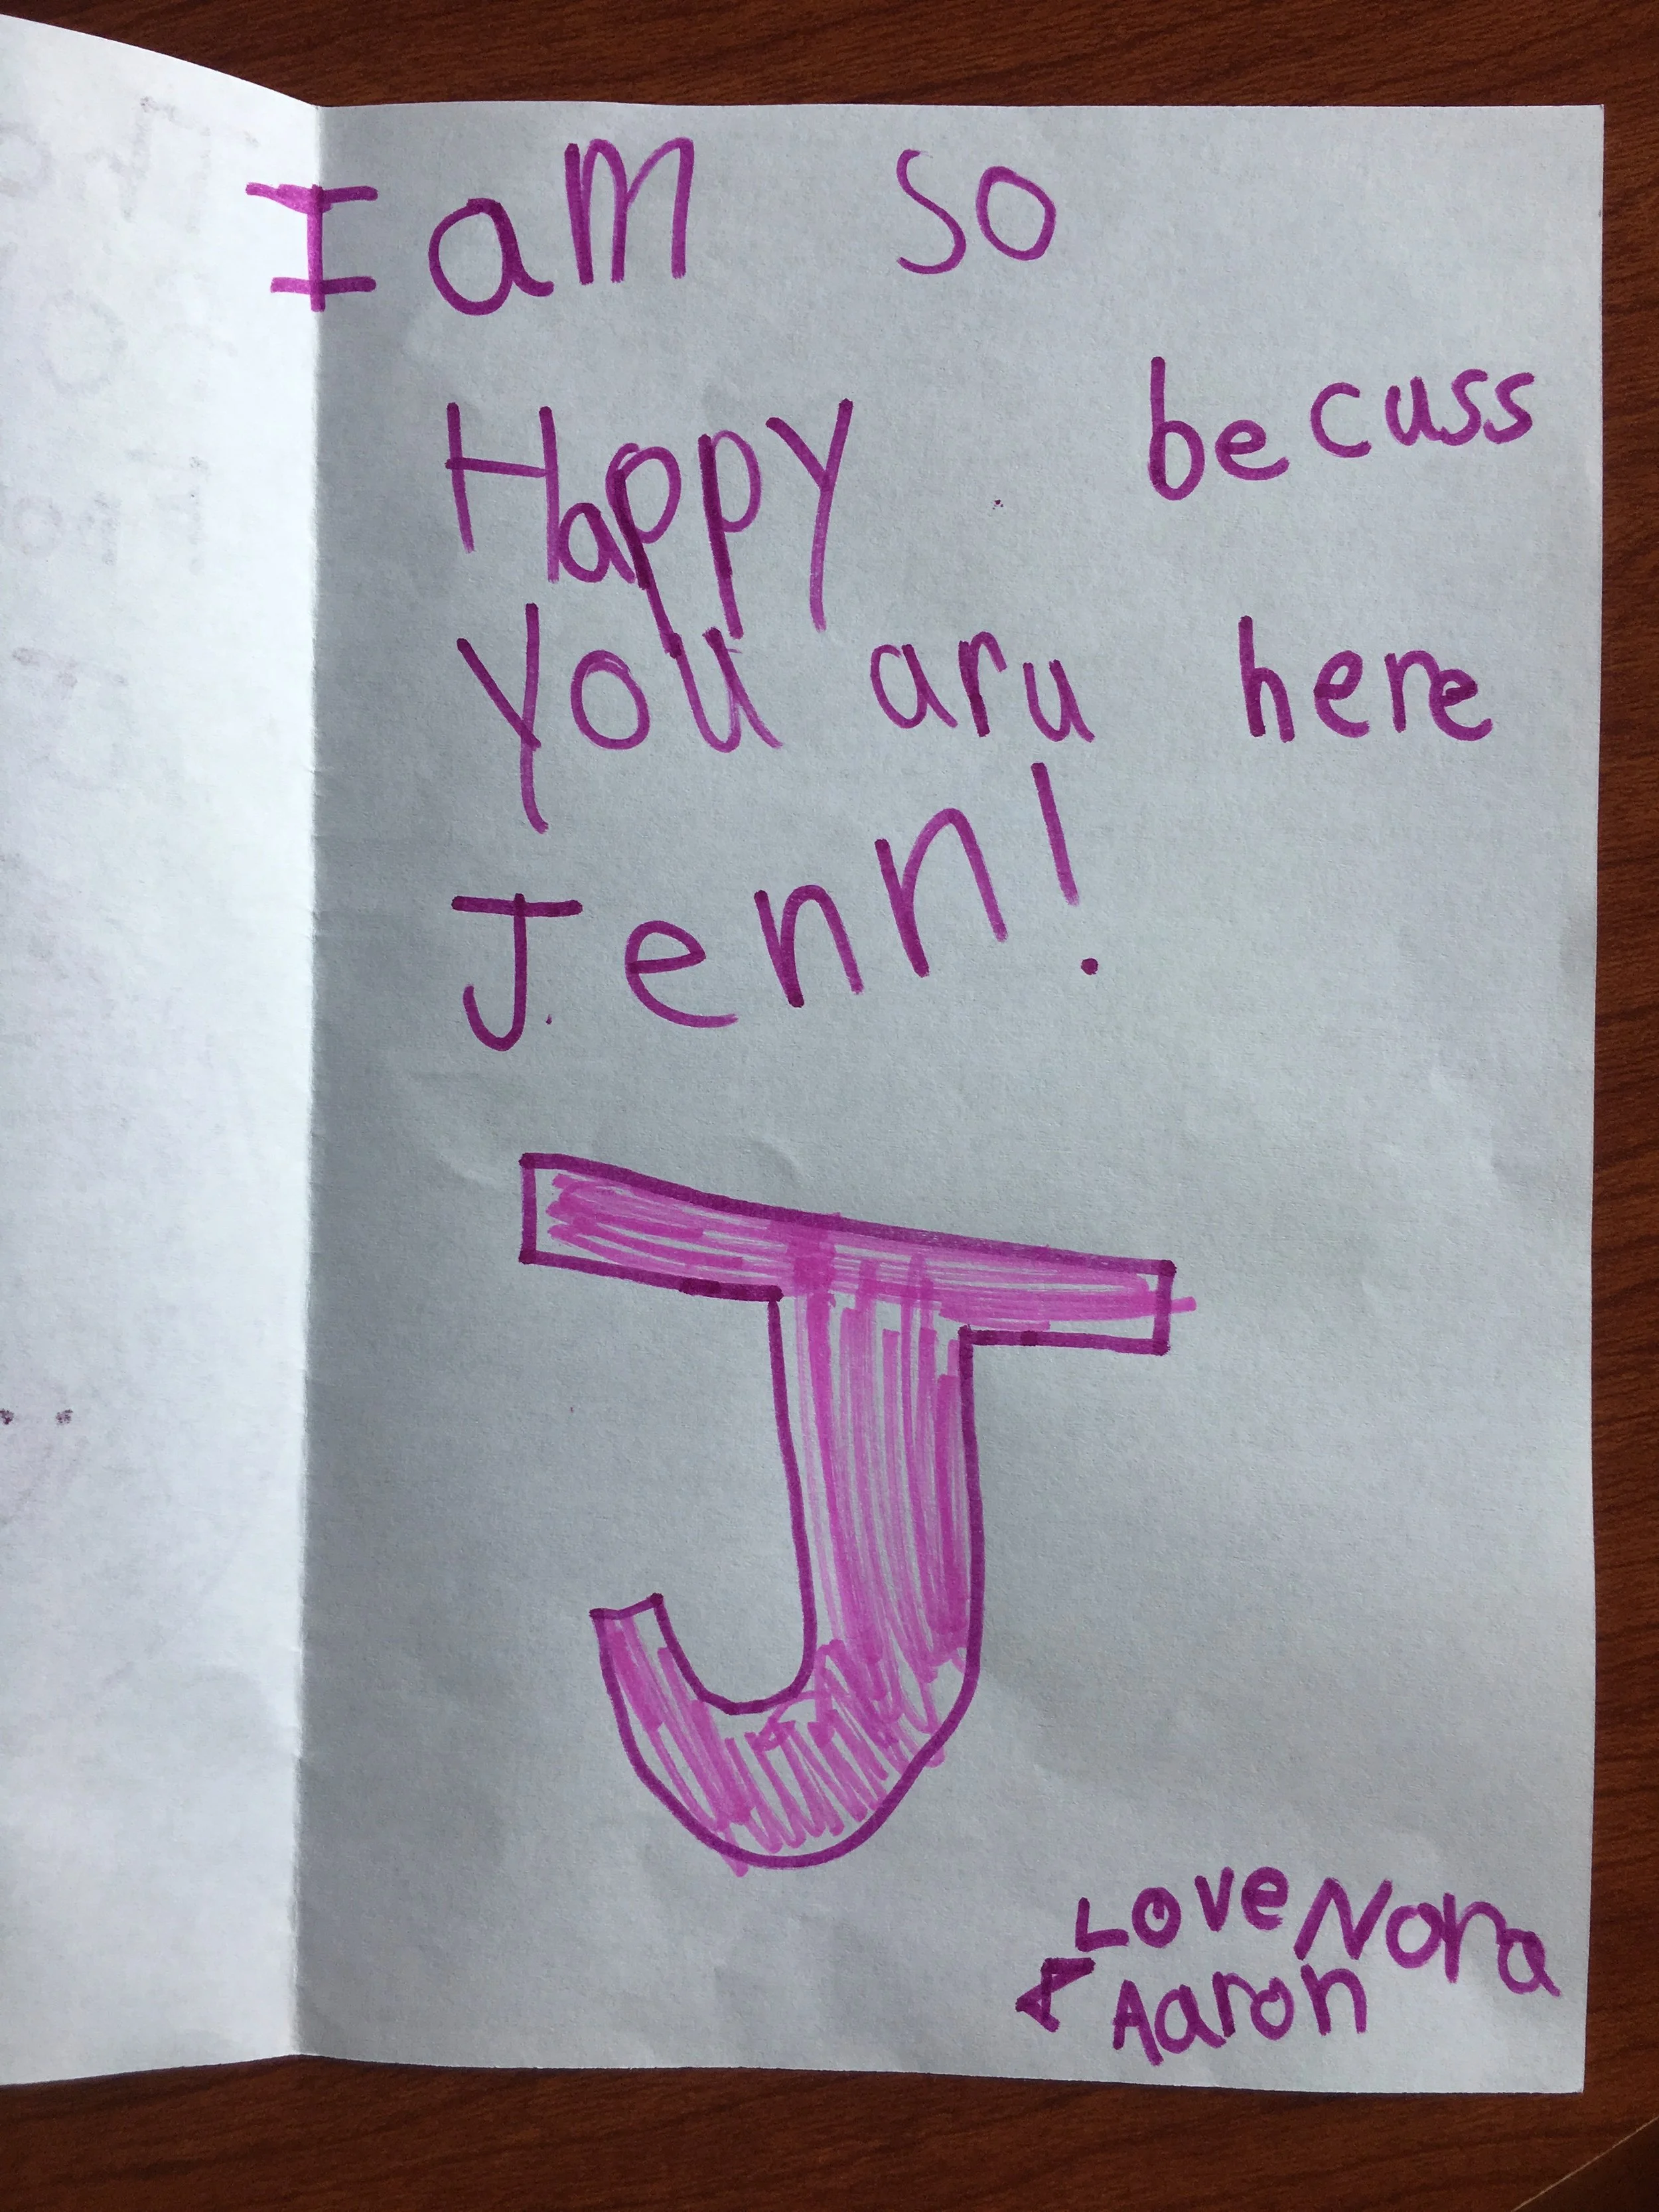 I am so
Happy becuss
you aru here
Jenn!
J
Love Nora
A Aaron